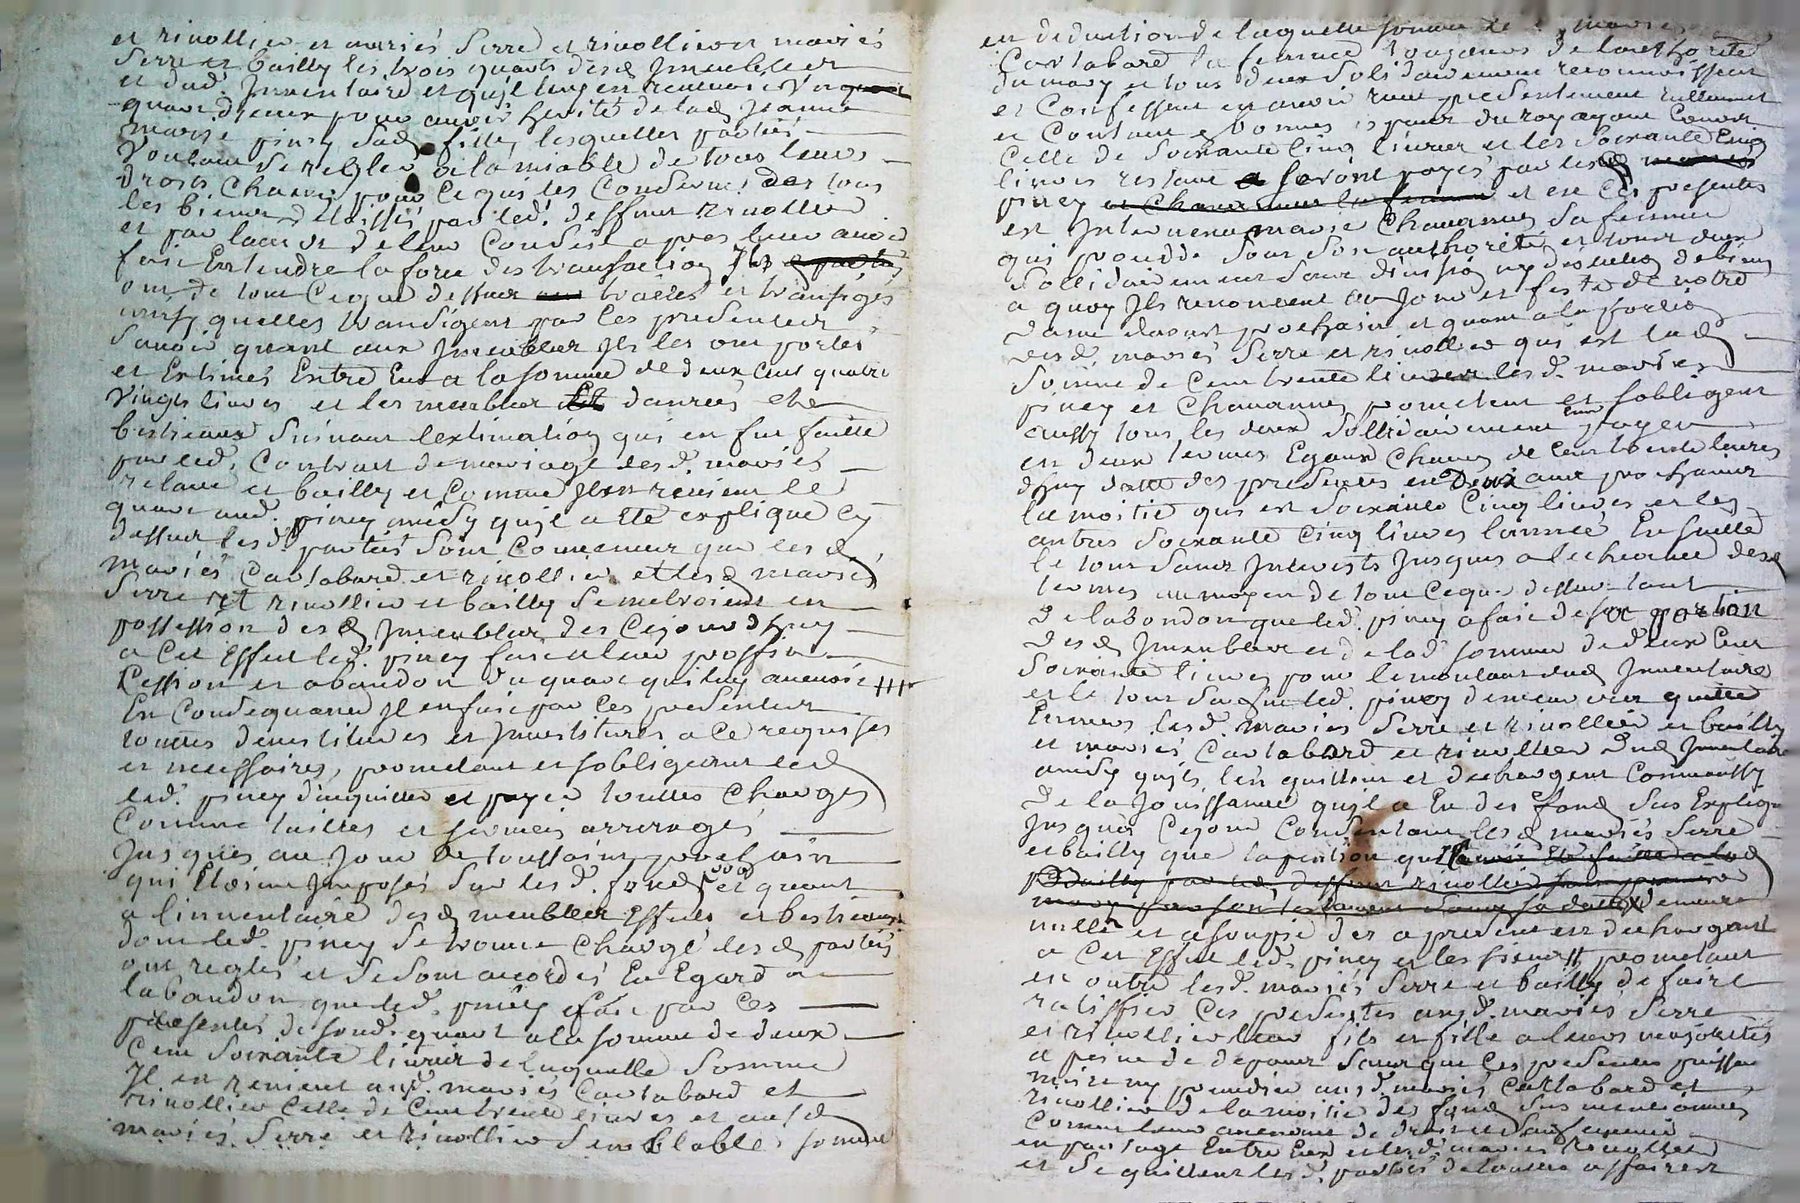 et rivollier et mariés Serre et rivollier et mariés
Serre et bailly les trois quarts desd immeubles
et dud. Inventaire et quil luy en revenoit
quart diceux pour avoir herité de lad Jeanne
marie piney sa fille lesquelles parties
voulant se regler a lamiable de tous leurs
droits chacun pour ce qui les conserne des tous
les biens delaissés par led. deffunt rivollier
et par lavis de leur conseil apres leur avoir
fait Entendre la force des transaction Ils
ont de tout ceque dessus traités et transigés
quelles transigent par ces presentes
Savoir quant aux Immeubles Ils les ont portés
et Estimés Entre Eux a la somme de deux cent quatre
vingts livres et les meubles danrées et
bestieaux suivant lextimation qui en fut faitte
par led. contract de mariage desd. mariés
et bailly et comme Il en revient le
quart aud. piney ainsy quil a ete explique cy
dessus lesd parties sont convenues que lesd
mariés Cartabard et rivollier et lesd mariés
Serre et rivollier et bailly se metroient en
possession desd Immeubles des cejourdhuy
a cet Effet led. piney fait a leur proffit
Cession et abandon du quart qui luy avenoit
En consequance Il en fait par ces presentes
touttes devestitures et Investitures a ce requises
et nessessaires, prometant et sobligeant
led. piney dacquitter et payer touttes charges
Comme tailles et arrerages
Jusques au Jour de toussaint prochain
qui Etoient Imposés sur lesd. fonds et quant
a linventaire desd meubles Effets et bestieaux
dont led. piney se trouve chargé lesd parties
ont reglés et se sont accordés En Egard a
labandon que led. piney a fait par ces
presentes de son quart a la somme de deux
Cent soixante livres de laquelle somme
Il en revient aud. mariés Cartabard et
rivollier celle de Cent trente livres et ausd
mariés Serre et rivollier semblable somme
en deduction de laquelle somme mariés
Cartabard la femme de lauthorité
du mary et tous deux solidairement reconnoissent
et Confessent en avoir reçu presentement reellement
et Contant Bonnes especes du royayme Couvr
Celle de soixante Cinq livres et les soixante Cinq
livres restant seront payés par lesd
piney et en ces presentes
est Intervenu marie Chavannes sa femme
qui procede sous son authorité et tous deux
Sollidairement sans division ny discution de biens
a quoy Ils renoncent au Jour et feste de notre
Dame daoust prochain et quant a la portion
desd. mariés Serre et rivollier qui est lad
somme de Cent trente livres lesd. mariés
piney et Chavannes prometent et sobligent
aussy tous les deux sollidairement payer
en deux termes Egaux chacun de Cent trente livres
dhuy datte des presentes en Deux ans prochains
la moitie qui est soixante Cinq livres et les
autres soixante Cinq livres lannée En suitte
le tout sans Interests Jusques a lecheance desd
termes au moyen de tout ceque dessus tant
de labandon que led. piney a fait de sa portion
desd Immeubles et de lad somme de deux Cent
soixante livres pour le montant dud Inventaire
et le tout led. piney demeurer quitte
Envers lesd. mariés Serre et rivollier et bailly
et mariés Cartabard et rivollier dud Inventaire
ainsy quils len quittent et dechargent comme aussy
de la Jouissance quil a Eu des fond sus Explique
Jusques Cejour Consentant lesd mariés Serre
et bailly que lapention
demeure
nulle et assoupie des a present en dechargeant
a cet Effet led. piney et les siens prometant
en outre lesd. mariés Serre et bailly de faire
ratiffier ces presentes ausd. mariés Serre
et rivollier leur fils et fille a leurs majorités
a peine de depens sans que ces presentes puisse
nuire ny preudicier ausd. mariés Cartabard et
rivollier de la moitie des fonds sus mentionnés
Comme leur avenant de droits
en partage Entre Eux et lesd. mariés rivollier
et se quittent lesd. parties de touttes affaires